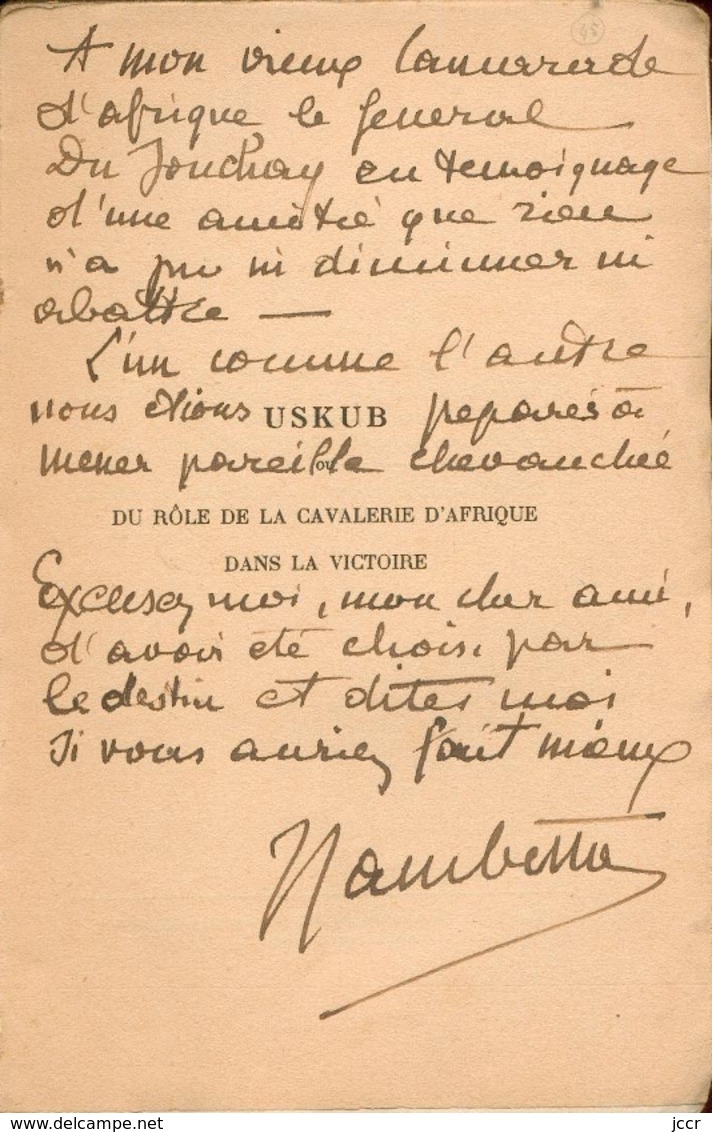 45
A mon vieux camarade
d'afrique le general
Du Jonchay en temoignage
d'une amitié que rien
n'a pu ni diminuer ni
abattre —
L'un comme l'autre
nous étions preparés à
USKUB
mener pareille chevauchée
ou
DU RÔLE DE LA CAVALERIE D'AFRIQUE
DANS LA VICTOIRE
Excusez moi, mon cher ami,
d'avoir été choisi par
le destin et dites moi
si vous auriez fait mieux
Jambetta
jccr